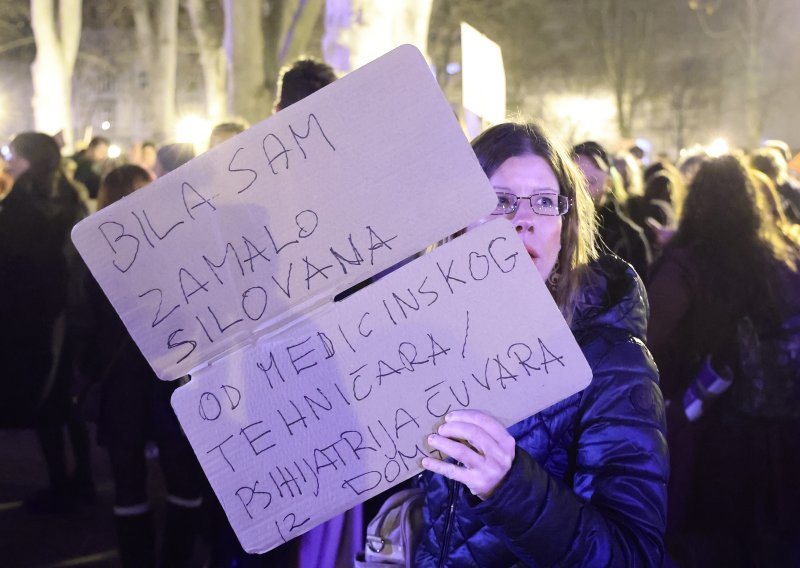 BILA SAM
ZAMALO
SILOVANA
OD MEDICINSKOG
TEHNIČARA/
PSIHIJATRIJA ČUVARA
12